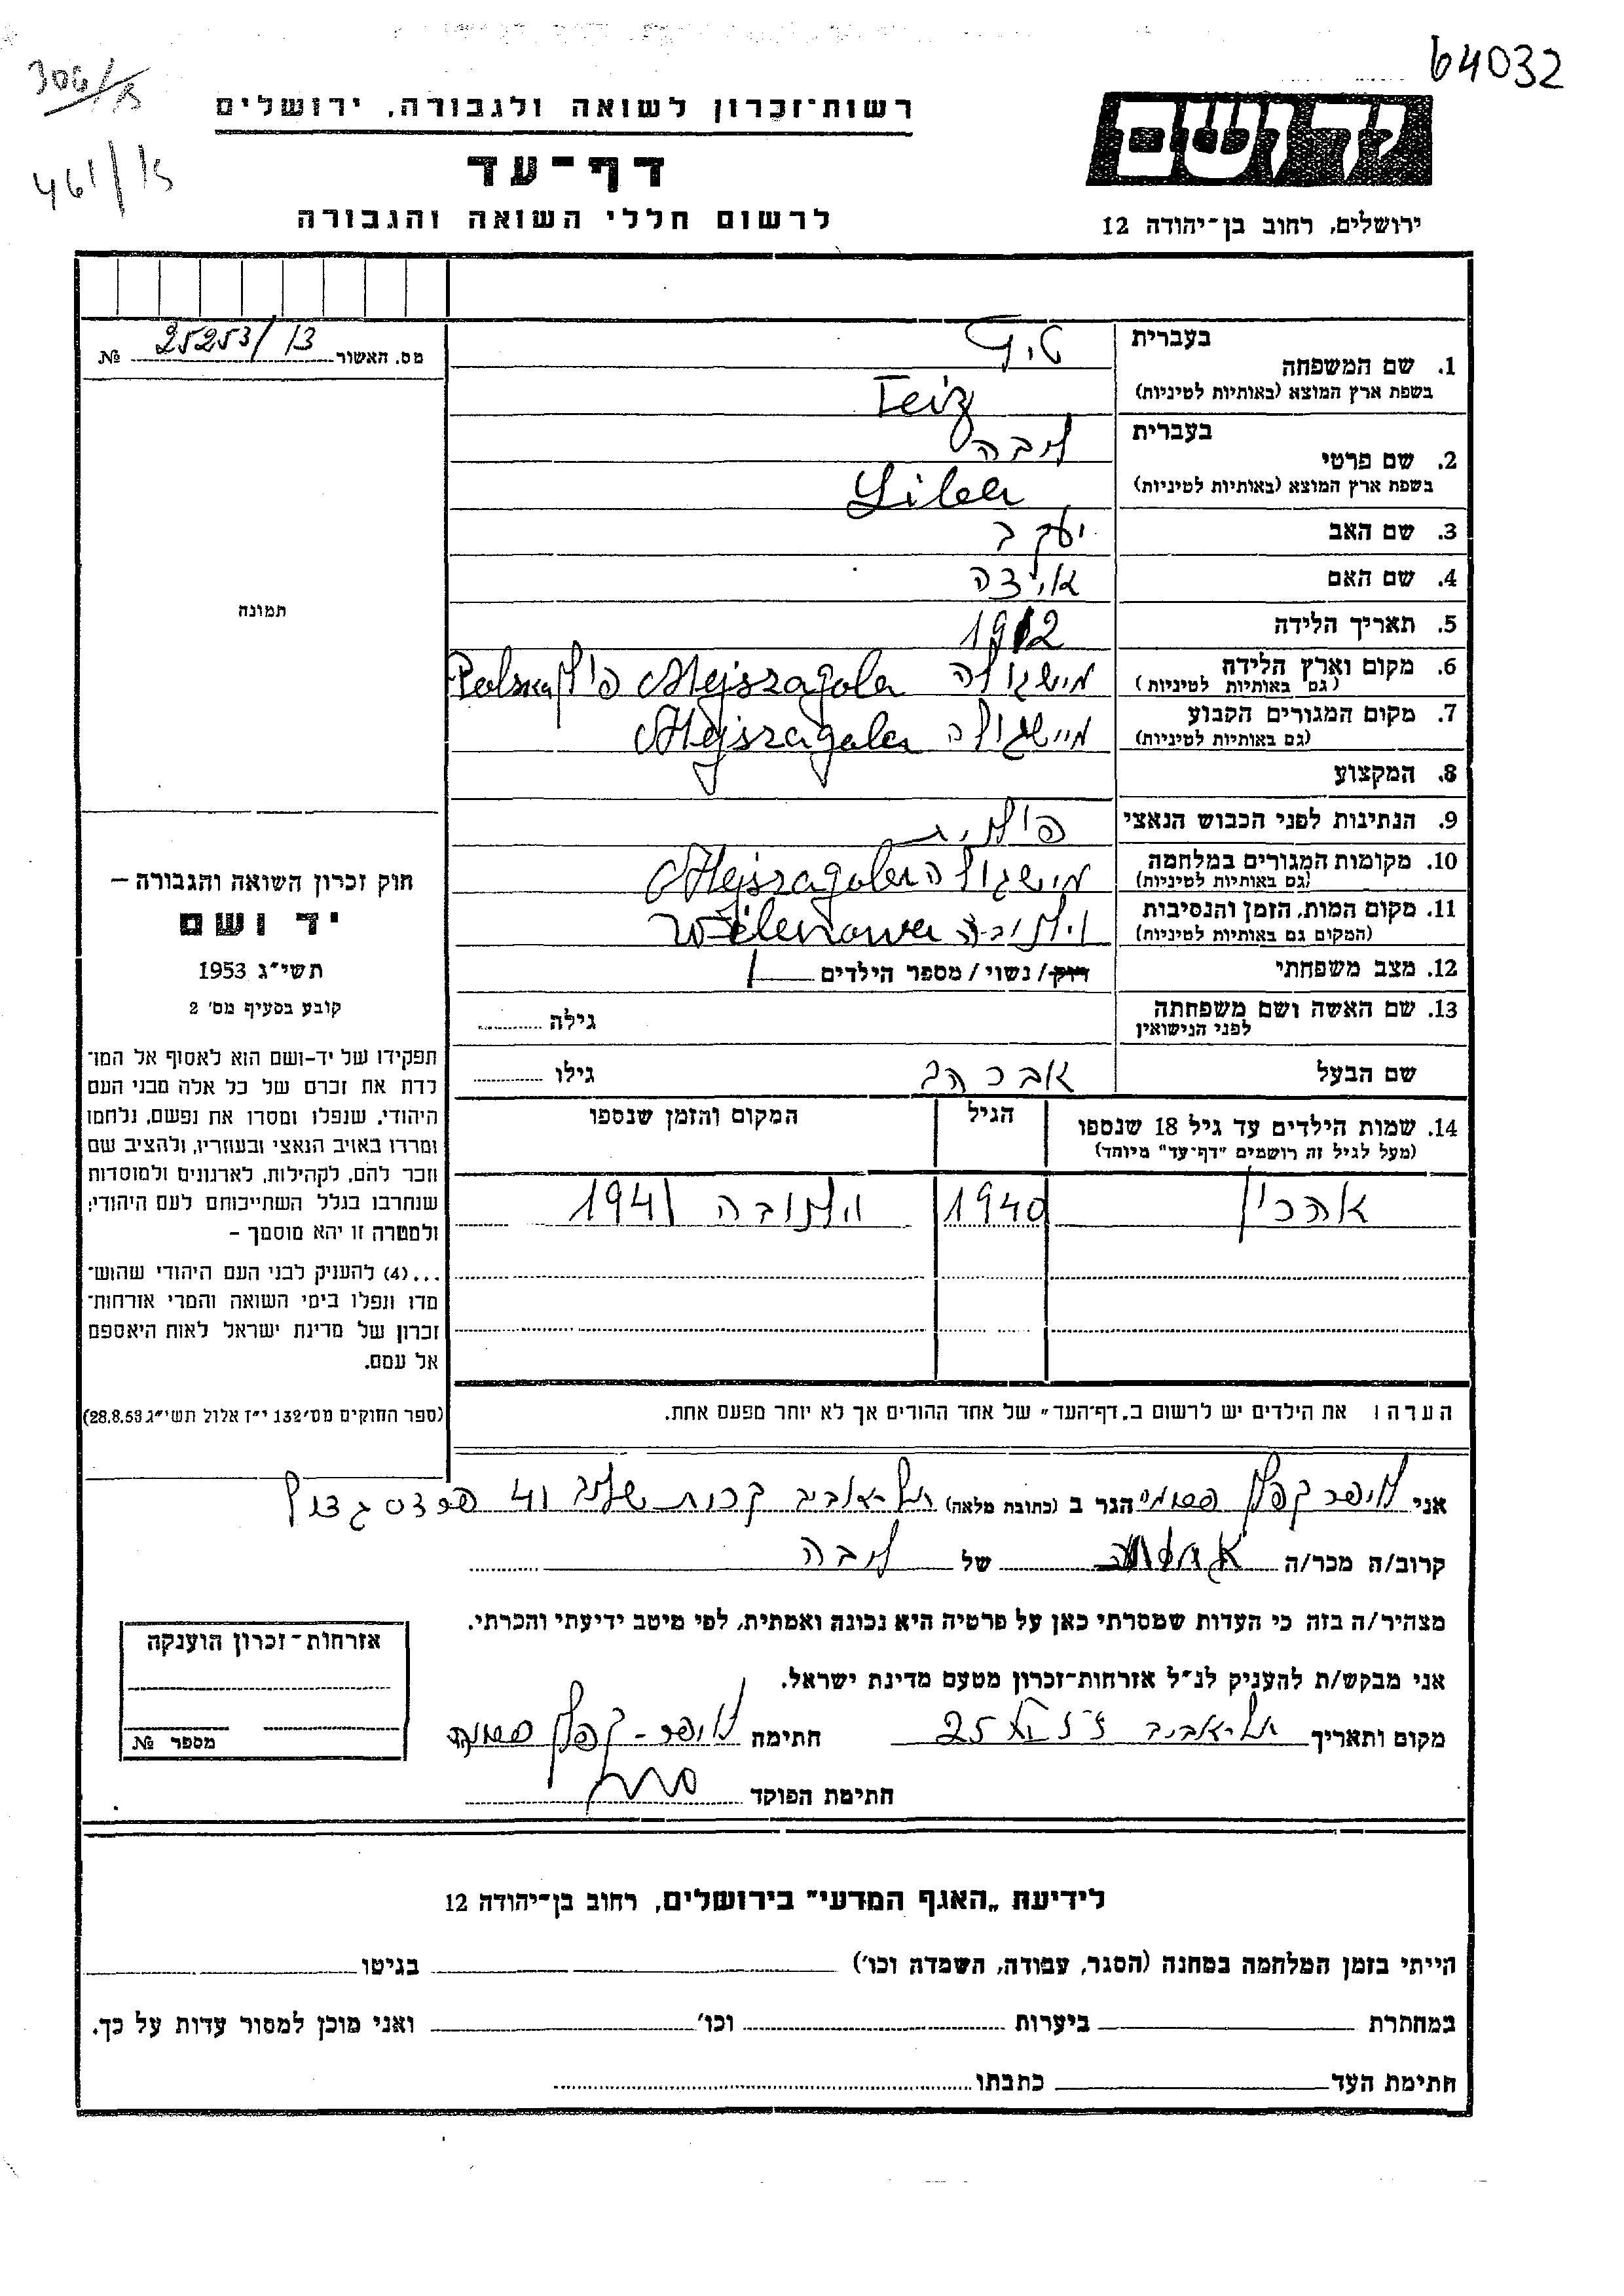 64032
306/א
461/א
יד ושם
ירושלים, רחוב בן־יהודה 12
רשות־זכרון לשואה ולגבורה, ירושלים
דף־עד
לרשום חללי השואה והגבורה
מס. האשור 25253/13 №
תמונה
חוק זכרון השואה והגבורה –
יד ושם
תשי״ג 1953
קובע בסעיף מס׳ 2
תפקידו של יד-ושם הוא לאסוף אל המו־
לדת את זכרם של כל אלה מבני העם
היהודי, שנפלו ומסרו את נפשם, נלחמו
ומרדו באויב הנאצי ובעוזריו, ולהציב שם
וזכר להם, לקהילות, לארגונים ולמוסדות
שנחרבו בגלל השתייכותם לעם היהודי;
ולמטרה זו יהא מוסמך –
...(4) להעניק לבני העם היהודי שהוש־
מדו ונפלו בימי השואה והמרי אזרחות־
זכרון של מדינת ישראל לאות היאספם
אל עמם.
(ספר החוקים מס׳ 132 י״ז אלול תשי״ג 28.8.53)
בעברית
1. שם המשפחה
(בשפת ארץ המוצא (באותיות לטיניות
Teiz
בעברית לבה
2. שם פרטי
(בשפת ארץ המוצא (באותיות לטיניות
Liba
3. שם האב יעקב
4. שם האם
5. תאריך הלידה 1912
6. מקום וארץ הלידה מישגולה Mejszagola פולין Polska
(גם באותיות לטיניות)
7. מקום המגורים הקבוע מיישגולה Mejszagola
(גם באותיות לטיניות)
8. המקצוע
9. הנתינות לפני הכבוש הנאצי פולנית
10. מקומות המגורים במלחמה מישגולה Mejszagola
(גם באותיות לטיניות)
11. מקום המות, הזמן והנסיבות
(המקום גם באותיות לטיניות)
12. מצב משפחתי רווק/ נשוי / מספר הילדים 1
13. שם האשה ושם משפחתה לפני הנישואין גילה
שם הבעל אברהם גילו
14. שמות הילדים עד גיל 18 שנספו הגיל המקום והזמן שנספו
(מעל לגיל זה רושמים "דף־עד" מיוחד)
אהרון 1940 1941
הערה: את הילדים יש לרשום ב„דף־העד״ של אחד ההורים אך לא יותר מפעם אחת.
אני ליפר קפלן הגר ב (כתובת מלאה) תל-אביב 41
קרוב/ה מכר/ה של לבה
מצהיר/ה בזה כי העדות שמסרתי כאן על פרטיה היא נכונה ואמתית, לפי מיטב ידיעתי והכרתי.
אני מבקש/ת להעניק לנ״ל אזרחות־זכרון מטעם מדינת ישראל.
מקום ותאריך תל-אביב חתימה ליפר-קפלן
חתימת הפוקד
אזרחות־זכרון הוענקה
מספר №
לידיעת „האגף המדעי״ בירושלים, רחוב בן־יהודה 12
הייתי בזמן המלחמה במחנה (הסגר, עבודה, השמדה וכו׳) בגיטו
במחתרת ביערות וכו׳ ואני מוכן למסור עדות על כך.
חתימת העד כתבתו